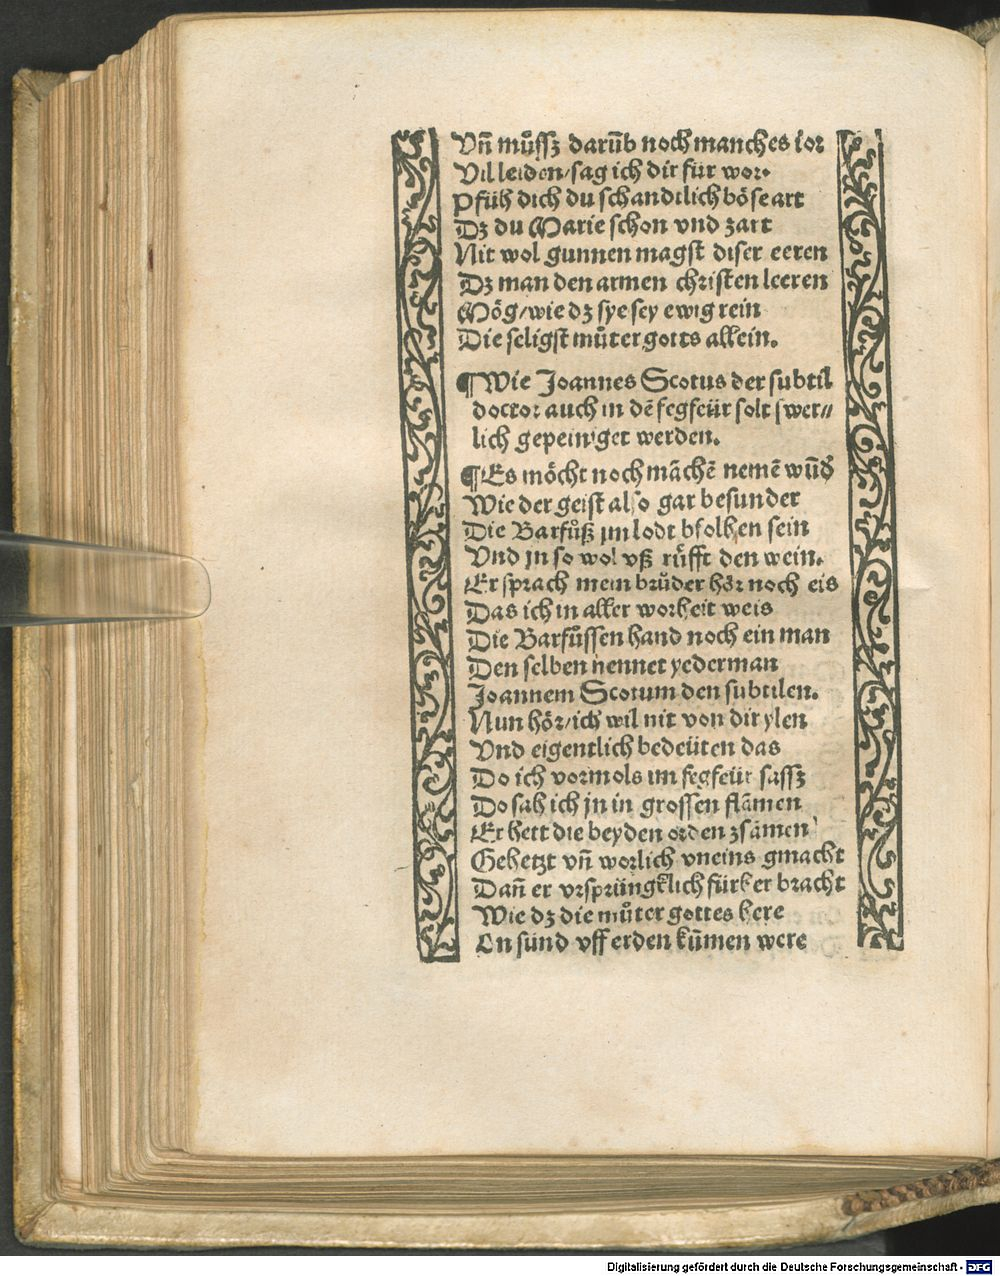 Vñ můſſz darūb noch manches ior
Vil leiden/ſag ich dir für wor.
Pfüh dich du ſchandtlich böſe art
Dz du Marie ſchon vnd zart
Nit wol gunnen magſt diſer eeren
Dz man den armen chriſten leeren
Mög/wie dz ſye ſey ewig rein
Die ſeligſt můter gotts allein.
¶Wie Joannes Scotus der ſubtil
doctor auch in dē fegfeür ſolt ſwer⸗
lich gepeiniget werden.
¶Es möcht noch māchē nemē wūd
Wie der geiſt alſo gar beſunder
Die Barfůß im lodt bfolhen ſein
Vnd jn ſo wol vß rüfft den wein.
Er ſprach mein brůder hör noch eis
Das ich in aller worheit weis
Die Barfůſſen hand noch ein man
Den ſelben nennet yederman
Joannem Scotum den ſubtilen.
Nun hör/ich wil nit von dir ylen
Vnd eigentlich bedeüten das
Do ich vormols im fegfeür ſaſſz
Do ſah ich jn in groſſen flāmen
Er hett die beyden orden zſāmen
Gehetzt vñ worlich vneins gmacht
Dañ er vrſprüngklich fürher bracht
Wie dz die můter gottes here
On ſünd vff erden kūmen were
Digitalisierung gefördert durch die Deutsche Forschungsgemeinschaft - DFG